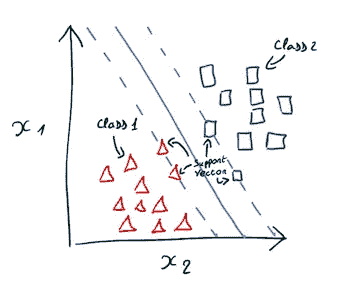 Class 2
x1
Class 1
Support
vector
x2